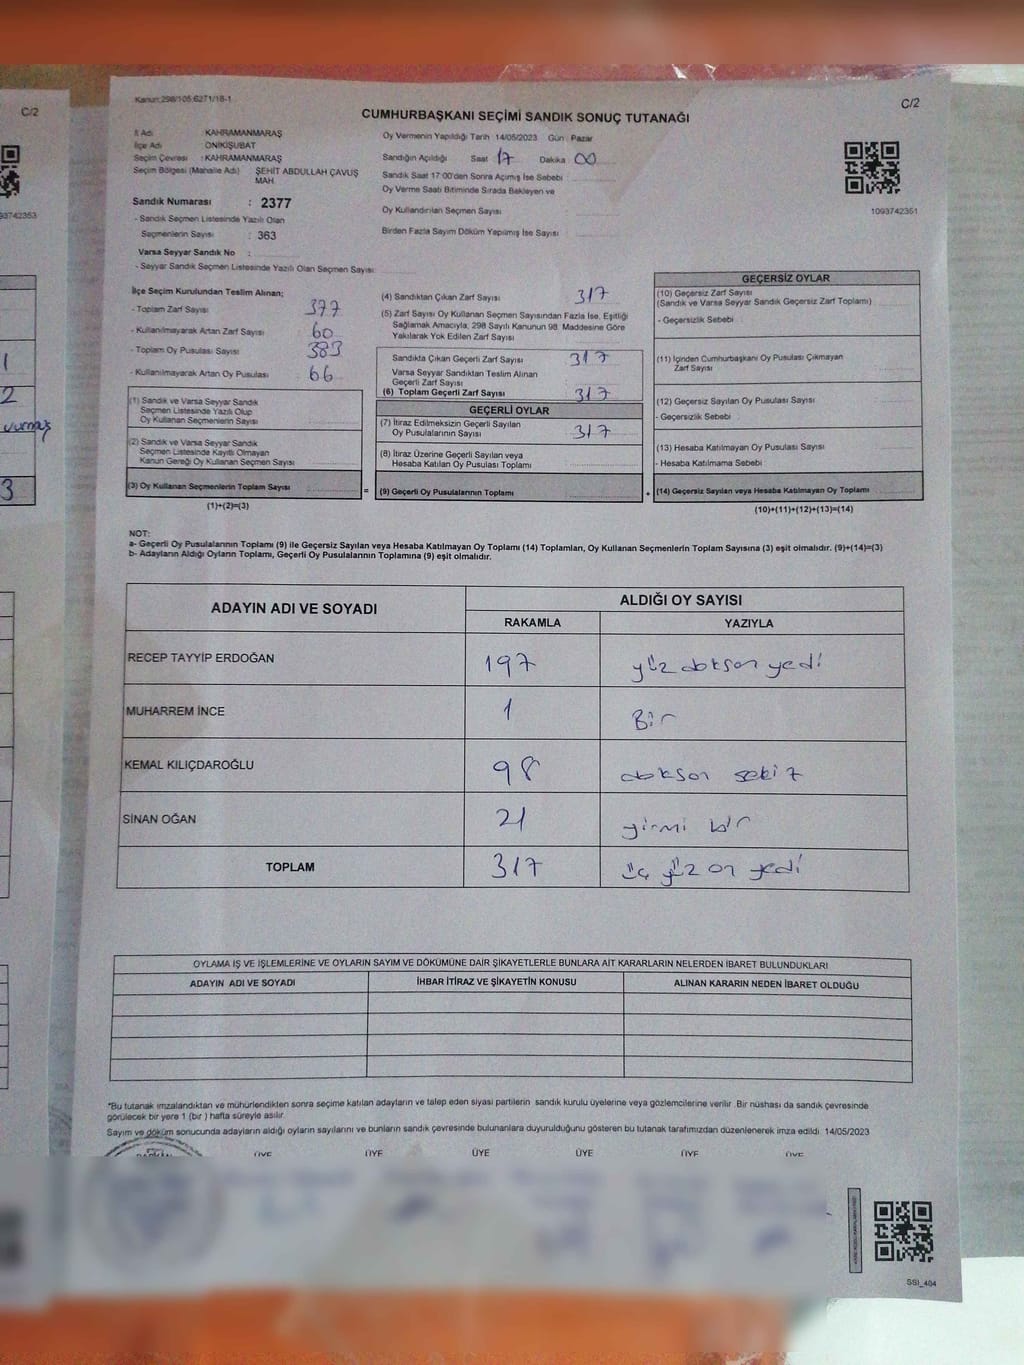 C/2
93742353
1
2
3
Kanun:298/105;6271/18-1
C/2
CUMHURBAŞKANI SEÇİMİ SANDIK SONUÇ TUTANAĞI
İl Adı KAHRAMANMARAŞ
İlçe Adı ONİKİŞUBAT
Seçim Çevresi : KAHRAMANMARAŞ
Seçim Bölgesi (Mahalle Adı) ŞEHİT ABDULLAH ÇAVUŞ
MAH.
Sandık Numarası : 2377
- Sandık Seçmen Listesinde Yazılı Olan
Seçmenlerin Sayısı : 363
Varsa Seyyar Sandık No :
- Seyyar Sandık Seçmen Listesinde Yazılı Olan Seçmen Sayısı:
Oy Vermenin Yapıldığı Tarih 14/05/2023 Gün : Pazar
Sandığın Açıldığı Saat 17 Dakika 00
Sandık Saat 17:00'den Sonra Açmış İse Sebebi
Oy Verme Saati Bitiminde Sırada Bekleyen ve
Oy Kullandırılan Seçmen Sayısı :
Birden Fazla Sayım Döküm Yapılmış İse Sayısı :
1093742351
İlçe Seçim Kurulundan Teslim Alınan;
- Toplam Zarf Sayısı 377
- Kullanılmayarak Artan Zarf Sayısı : 60
- Toplam Oy Pusulası Sayısı 383
- Kullanılmayarak Artan Oy Pusulası : 66
(1) Sandık ve Varsa Seyyar Sandık
Seçmen Listesinde Yazılı Olup
Oy Kullanan Seçmenlerin Sayısı :
(2) Sandık ve Varsa Seyyar Sandık
Seçmen Listesinde Kayıtlı Olmayan
Kanun Gereği Oy Kullanan Seçmen Sayısı :
(3) Oy Kullanan Seçmenlerin Toplam Sayısı :
(1)+(2)=(3)
=
(4) Sandıktan Çıkan Zarf Sayısı : 317
(5) Zarf Sayısı Oy Kullanan Seçmen Sayısından Fazla İse, Eşitliği
Sağlamak Amacıyla, 298 Sayılı Kanunun 98. Maddesine Göre
Yakılarak Yok Edilen Zarf Sayısı :
Sandıkta Çıkan Geçerli Zarf Sayısı : 317
Varsa Seyyar Sandıktan Teslim Alınan
Geçerli Zarf Sayısı :
(6) Toplam Geçerli Zarf Sayısı : 317
GEÇERLİ OYLAR
(7) İtiraz Edilmeksizin Geçerli Sayılan
Oy Pusulalarının Sayısı : 317
(8) İtiraz Üzerine Geçerli Sayılan veya
Hesaba Katılan Oy Pusulası Toplamı :
(9) Geçerli Oy Pusulalarının Toplamı :
+
GEÇERSİZ OYLAR
(10) Geçersiz Zarf Sayısı
(Sandık ve Varsa Seyyar Sandık Geçersiz Zarf Toplamı) :
- Geçersizlik Sebebi :
(11) İçinden Cumhurbaşkanı Oy Pusulası Çıkmayan
Zarf Sayısı :
(12) Geçersiz Sayılan Oy Pusulası Sayısı :
- Geçersizlik Sebebi :
(13) Hesaba Katılmayan Oy Pusulası Sayısı :
- Hesaba Katılmama Sebebi :
(14) Geçersiz Sayılan veya Hesaba Katılmayan Oy Toplamı :
(10)+(11)+(12)+(13)=(14)
NOT:
a- Geçerli Oy Pusulalarının Toplamı (9) ile Geçersiz Sayılan veya Hesaba Katılmayan Oy Toplamı (14) Toplamları, Oy Kullanan Seçmenlerin Toplam Sayısına (3) eşit olmalıdır. (9)+(14)=(3)
b- Adayların Aldığı Oyların Toplamı, Geçerli Oy Pusulalarının Toplamına (9) eşit olmalıdır.
ADAYIN ADI VE SOYADI ALDIĞI OY SAYISI
RAKAMLA YAZIYLA
RECEP TAYYİP ERDOĞAN 197 yüz doksan yedi
MUHARREM İNCE 1 Bir
KEMAL KILIÇDAROĞLU 98 doksan sekiz
SİNAN OĞAN 21 yirmi bir
TOPLAM 317 üç yüz on yedi
OYLAMA İŞ VE İŞLEMLERİNE VE OYLARIN SAYIM VE DÖKÜMÜNE DAİR ŞİKAYETLERLE BUNLARA AİT KARARLARIN NELERDEN İBARET BULUNDUKLARI
ADAYIN ADI VE SOYADI İHBAR İTİRAZ VE ŞİKAYETİN KONUSU ALINAN KARARIN NEDEN İBARET OLDUĞU
*Bu tutanak imzalandıktan ve mühürlendikten sonra seçime katılan adayların ve talep eden siyasi partilerin sandık kurulu üyelerine veya gözlemcilerine verilir .Bir nüshası da sandık çevresinde
görülecek bir yere 1 (bir ) hafta süreyle asılır.
Sayım ve döküm sonucunda adayların aldığı oyların sayılarını ve bunların sandık çevresinde bulunanlara duyurulduğunu gösteren bu tutanak tarafımızdan düzenlenerek imza edildi. 14/05/2023
BAŞKAN ÜYE ÜYE ÜYE ÜYE ÜYE ÜYE
SSI_404